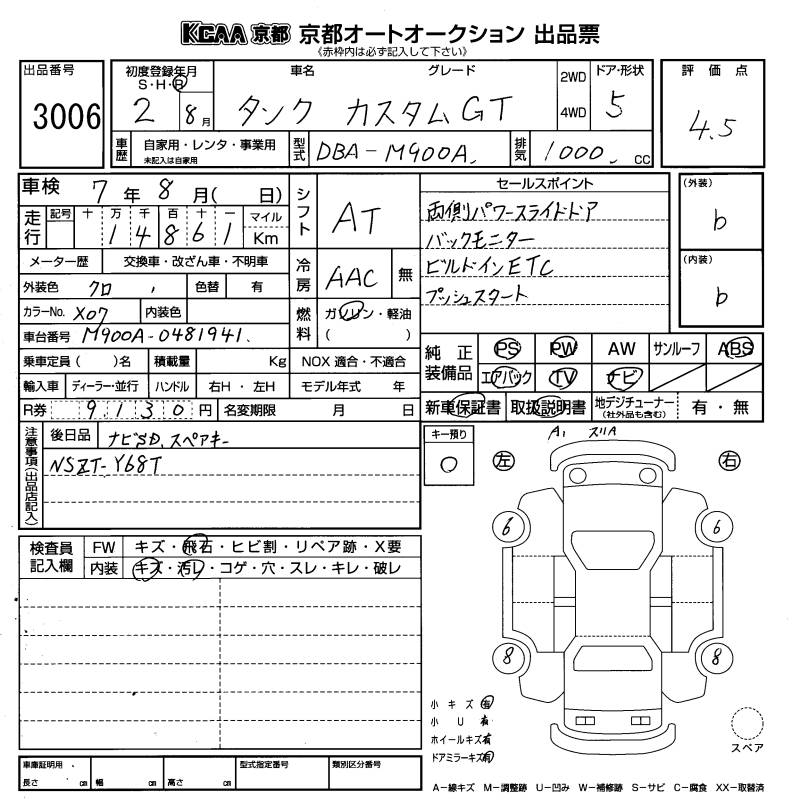 KCAA 京都 京都オートオークション 出品票
《赤枠内は必ず記入して下さい》
出品番号
3006
初度登録年月
S・H・R
2 8月
車名
グレード
タンク カスタムGT
2WD
4WD
ドア・形状
5
評価点
4.5
車歴
自家用・レンタ・事業用
未記入は自家用
型式
DBA-M900A
排気
1000 cc
車検 7年 8月( 日)
走行
記号 十 万 千 百 十 一 マイル
1 4 8 6 1 Km
メーター歴 交換車・改ざん車・不明車
外装色 クロ 色替 有
カラーNo. X07 内装色
車台番号 M900A-0481941
乗車定員( )名 積載量 Kg
輸入車 ディーラー・並行 ハンドル 右H・左H
R券 9130円 名変期限 月 日
シフト
AT
冷房
AAC 無
燃料
ガソリン・軽油
( )
NOX適合・不適合
モデル年式 年
セールスポイント
両側パワースライドドア
バックモニター
ビルドインETC
プッシュスタート
(外装)
b
(内装)
b
純正装備品
PS PW AW サンルーフ ABS
エアバック TV ナビ
新車保証書 取扱説明書 地デジチューナー(社外品も含む) 有・無
注意事項(出品店記入)
後日品 ナビSD.スペアキー
NSZT-Y68T
キー預り
0
A1 スリA
左
右
6
6
8
8
検査員記入欄
FW キズ・飛石・ヒビ割・リペア跡・X要
内装 キズ・汚レ・コゲ・穴・スレ・キレ・破レ
小キズ有
小U有
ホイールキズ有
ドアミラーキズ有
スペア
車庫証明用
長さ cm 幅 cm 高さ cm
型式指定番号
類別区分番号
A-線キズ M-調整跡 U-凹み W-補修跡 S-サビ C-腐食 XX-取替済